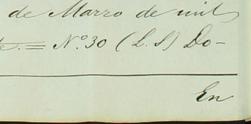 de Marzo de mil
te. = Nº. 30 (L. S) Do-
En